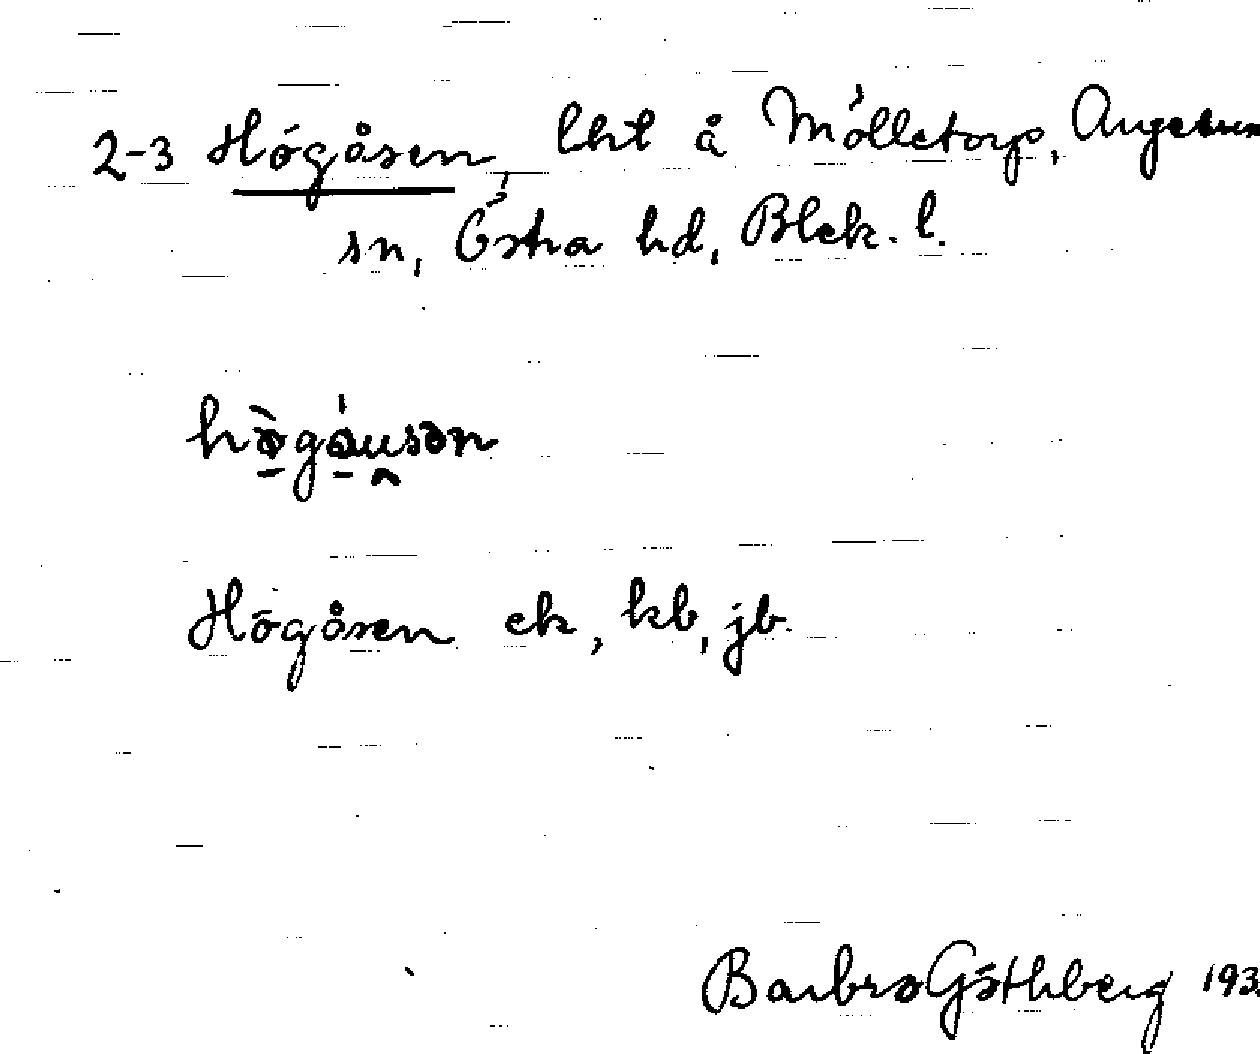 2-3 Högåsen, lht å Mölletorp, Augerum
sn, Östra hd, Blek. l.
högåusən
Högåsen ek, kb, jb.
Barbro Göthberg 193